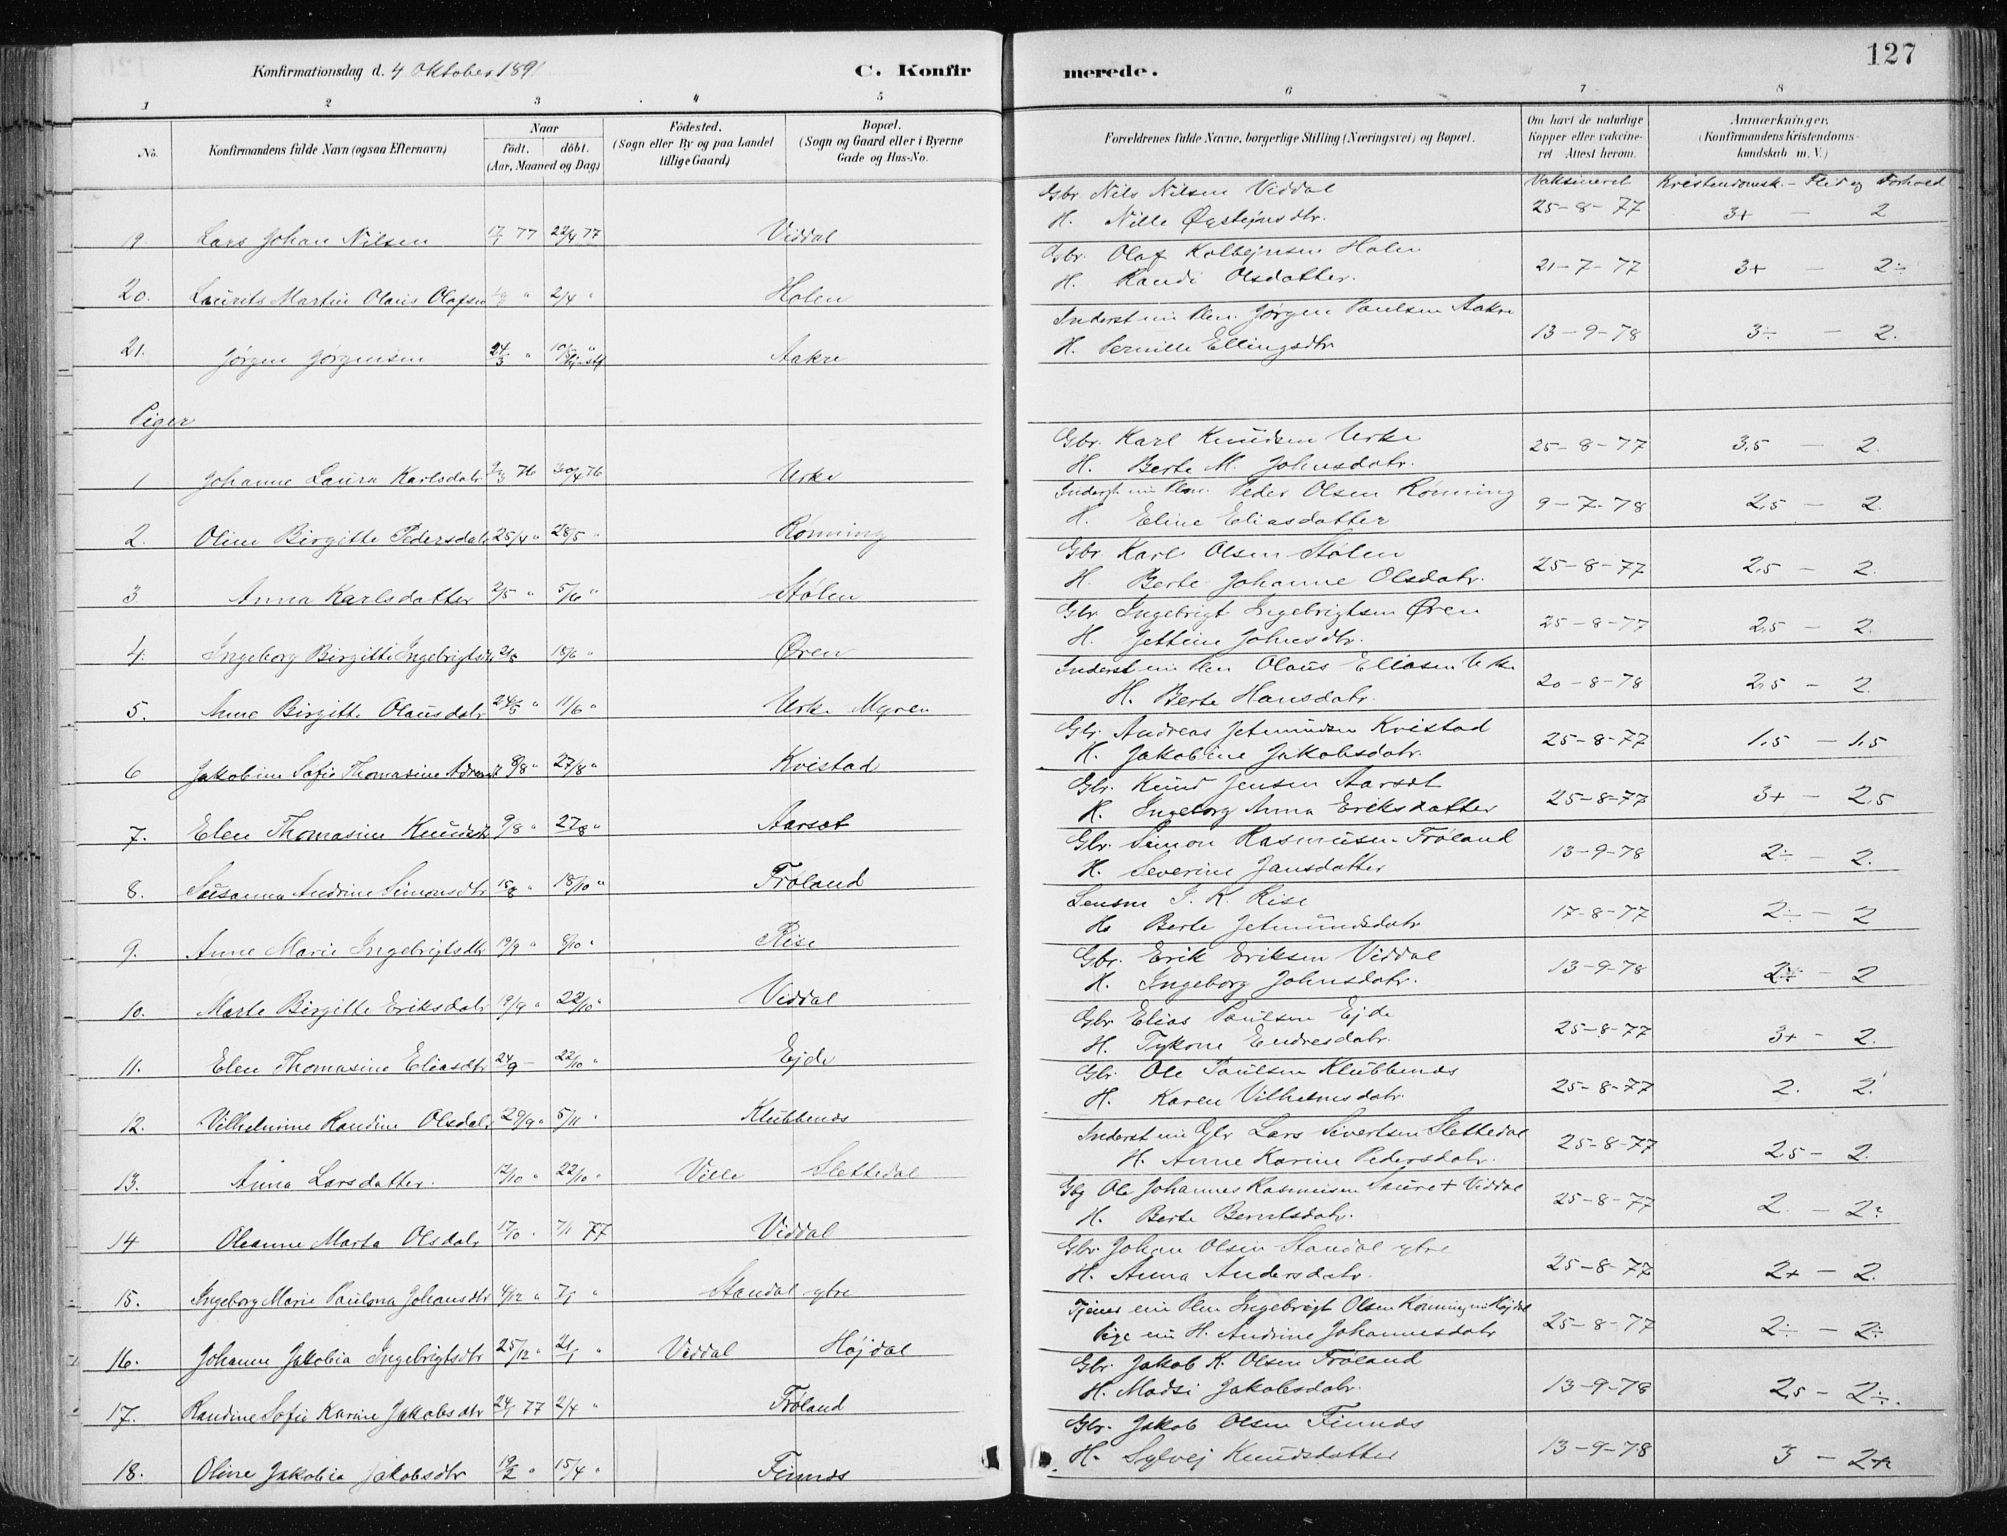 127
Konfirmationsdag d. 4 Oktober 1891
C. Konfirmerede.
1 2 3 4 5 6 7 8
No. Konfirmandens fulde Navn (ogsaa Efternavn) Naar født. døbt. (Aar, Maaned og Dag) Fødested. (Sogn eller By og paa Landet tillige Gaard) Bopæl. (Sogn og Gaard eller i Byerne Gade og Hus-No. Forældrenes fulde Navne, borgerlige Stilling (Næringsvei) og Bopæl. Om havt de naturlige Kopper eller vakcineret. Attest herom. Anmærkninger. (Konfirmandens Kristendomskundskab m. V.)
Vaksineret Kristendomsk. - Flid og Forhold
19 Lars Johan Nilsen 77 22/4 77 Viddal Gbr. Nils Nilsen Viddal 25-8-77 3+ - 2
H. Nille Øysteinsdtr.
20. Laurits Martin Olaus Olafsen " 2/4 " Holen Gbr. Olaf Kolbejnsen Holen 21-7-77 3+ - 2÷
H. Randi Olsdatter.
21. Jørgen Jørgensen 24/3 " Aakre Inderst Jørgen Paulsen Aakre 13-9-78 3÷ - 2.
H. Pernille Ellingsdtr
Piger
1 Johanne Laura Karlsdatr 76 30/4 76 Urke Gbr. Karl Knudsen Urke 25-8-77 3,5 - 2.
H. Berte M. Johnsdatr.
2. Oline Birgitte Pedersdatr 25/4 " 28/5 " Rønning Peder Olsen Rønning 9-7-78 2,5 - 2.
H. Eline Eliasdatter
3 Anna Karlsdatter 2/5 " 5/6 " Stølen Gbr Karl Olsen Stølen 25-8-77 2,5 - 2.
H. Berte Johanne Olsdatr.
4. Ingeborg Birgitte 18/6 " Øren Gbr. Ingebrigt Ingebrigtsen Øren 25-8-77 2,5 - 2.
H. Jettine Johnsdtr.
5. Anne Birgitte Olausdatr 24/5 " 11/6 " Urke Myren Inderst Olaus Eliasen Urke 20-8-78 2,5 - 2.
H. Berte Hansdatr.
6 Jakobine Sofie Thomasine 8/8 " 27/8 " Kvistad Gbr. Andreas Jetmundsen Kvistad 25-8-77 1,5 - 1,5
H. Jakobine Jakobsdatr.
7. Elen Thomasine Knudsdtr 9/8 " 27/8 " Aarsæt Gbr. Knud Jensen Aarsæt 25-8-77 3+ - 2,5
H. Ingeborg Anna Eriksdatter
8. Susanna Andrine Simonsdtr " 18/10 " Frøland Gbr. Simon Rasmusen Frøland 13-9-78 2÷ - 2.
H. Severine Jansdatter
9. Anne Marie Ingebrigtsdtr 19/9 " 8/10 " Rise Lensm I. K. Rise 17-8-77 2÷ - 2
H. Berte Jetmundsdatr
10. Marte Birgitte Eriksdatr 19/9 " 22/10 " Viddal Gbr. Erik Eriksen Viddal 13-9-78 - 2
H. Ingeborg Johnsdatr.
11. Elen Thomasine Eliasdtr 24/9 - 22/10 " Ejde Gbr Elias Paulsen Ejde 25-8-77 3+ - 2.
H. Endresdatr.
12. Vilhelmine Randine Olsdatr 29/9 " 5/11 " Klubbenes Gbr. Ole Paulsen Klubbenes 25-8-77 2. 2.
H. Karen Vilhelmsdatr.
13. Anna Larsdatter. 12/10 " 22/10 " Ville Slettedal Inderst Lars Sivertsen Slettedal 25-8-77 2,5 - 2.
H. Anne Karine Pedersdatr.
14 Oleanne Marta Olsdatr 17/10 . 7/1 77 Viddal Ole Johannes Rasmusen Viddal 25-8-77 2. - 2÷
H. Berte Berntsdatr.
15. Ingeborg Marie Paulona Johansdtr 4/12 " 7/1 " Standal ytre Gbr. Johan Olsen Standal ytre 25-8-77 2+ - 2.
H. Anna Andersdatr.
16. Johanne Jakobia Ingebrigtsdtr 25/12 " 21/1 " Viddal Højdal Ingebrigt Olsen Rønning 25-8-77 2÷ - 2÷
Pige H. Andrine Johannesdatr
17. Randine Sofie Karine Jakobsdtr 24/1 77 2/4 " Frøland Gbr. Jakob K. Olsen Frøland 13-9-78 2,5 - 2÷.
H. Madsi Jakobsdatr.
18. Oline Jakobia Jakobsdtr 19/2 " 15/4 " Finnes Gbr. Jakob Olsen Finnes 13-9-78 3 - 2+
H. Sylvej Knudsdatter